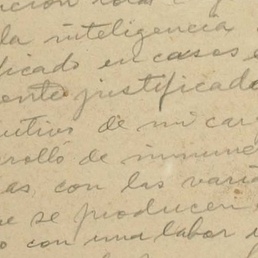 la inteligencia
dicado en casos e
ente justificado
utivo de mi car
rrolló de inmune
as con las varia
ue se producen e
o con una labor